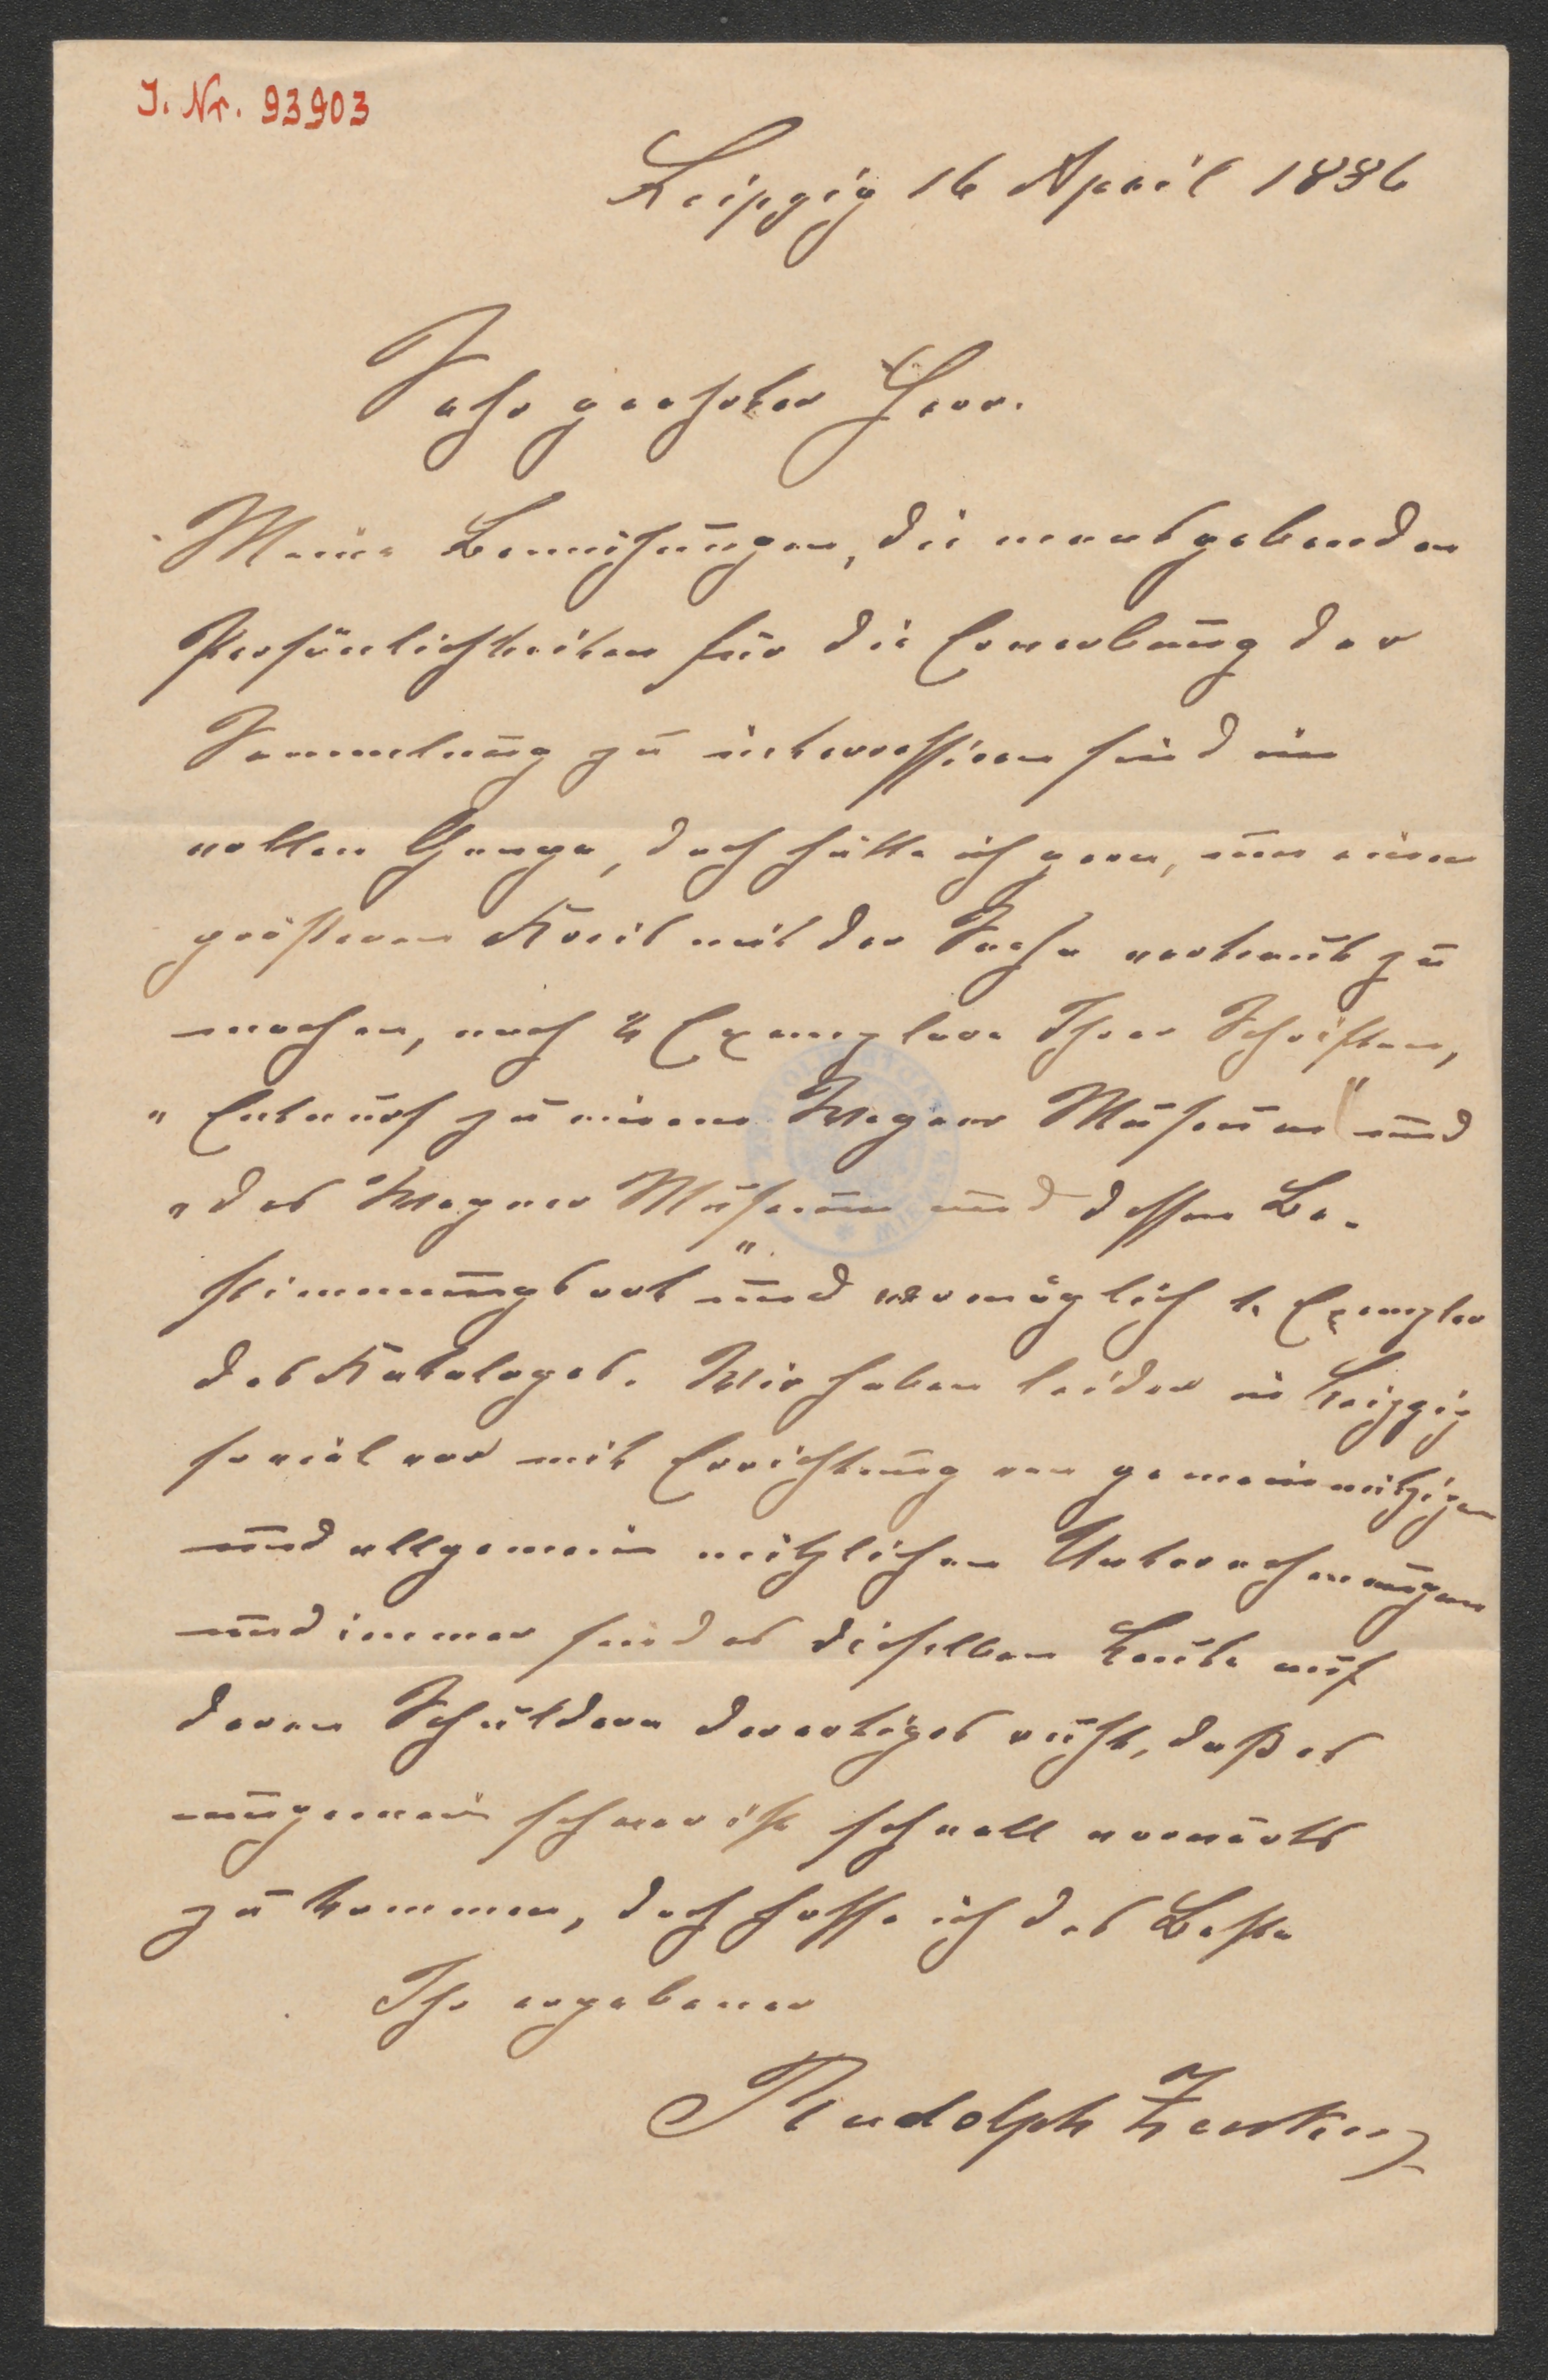 J. Nr. 93903
Leipzig 16 April 1886
Sehr geehrter Herr.
Meine Bemühungen, die maasgebenden
Persönlichkeiten für die Erwerbung der
Sammlung zu interessiren sind im
vollen Gange, doch hätte ich gern, um einen
größeren Kreis mit der Sache vertraut zu
machen, noch 4 Exemplare Ihrer Schriften,
"Entwurf zu einem Wagner Museum" und
"das Wagner Museum und dessen Be-
stimmungsort" und womöglich 1. Exemplar
des Kataloges. Wir haben leider in Leipzig
so viel vor mit Errichtung von gemeinnützigen
und allgemein nützlichen Unternehmungen
und immer sind es dieselben Leute auf
deren Schultern derartiges ruht, daß es
ungemein schwer ist schnell vorwärts
zu kommen, doch hoffe ich das Beste
Ihr ergebener
Rudolph Zenker